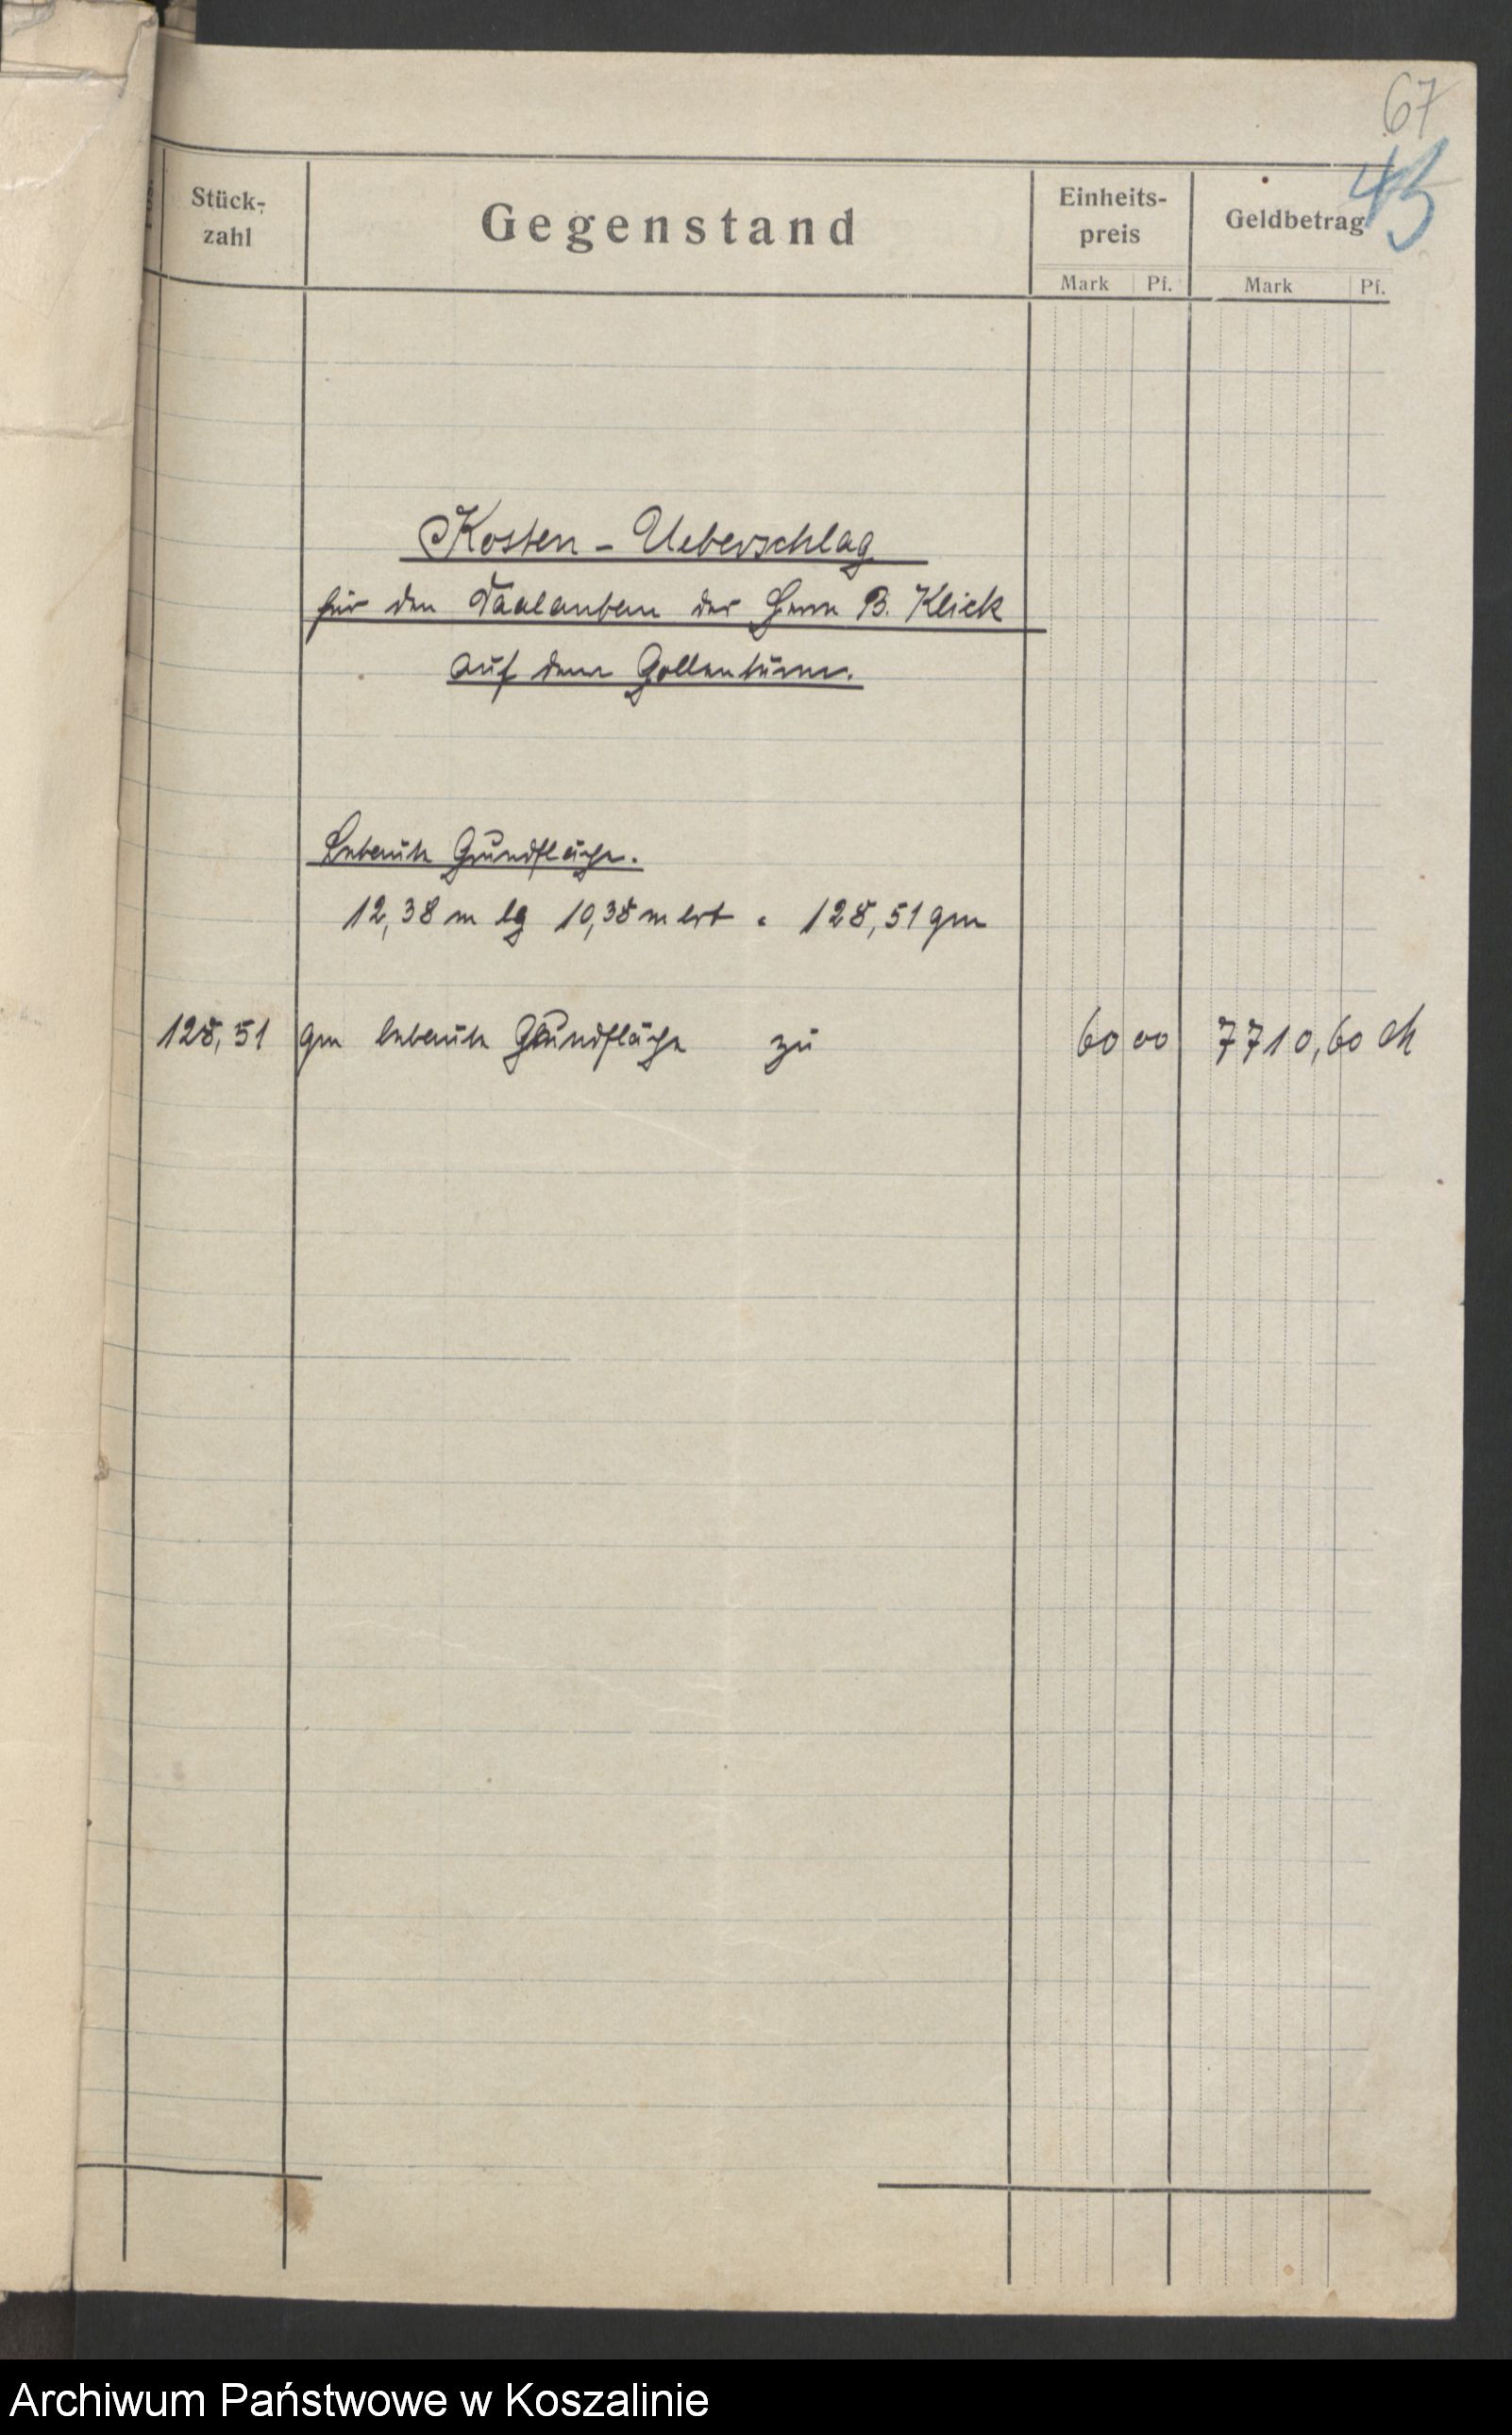 67
43
Stück-
zahl
Gegenstand
Einheits-
preis
Geldbetrag
Mark Pf. Mark Pf.
Kosten-Ueberschlag
für den Saalanbau des Herrn B. Klick
auf dem Gollenturm.
Bebaute Grundfläche.
12,38 m lg 10,38 m brt = 128,51 qm
128,51 qm bebaute Grundfläche zu 60 00 7710,60 M
Archiwum Państwowe w Koszalinie